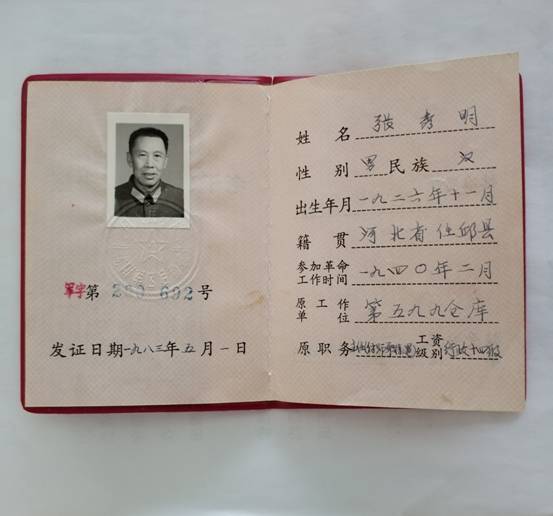 军字第 280-692 号
发证日期一九八三年五月一日
姓名 张孝明
性别 男 民族 汉
出生年月 一九二六年十一月
籍贯 河北省任邱县
参加革命工作时间 一九四〇年二月
原工作单位 第五九九仓库
原职务 工资级别 行政十四级